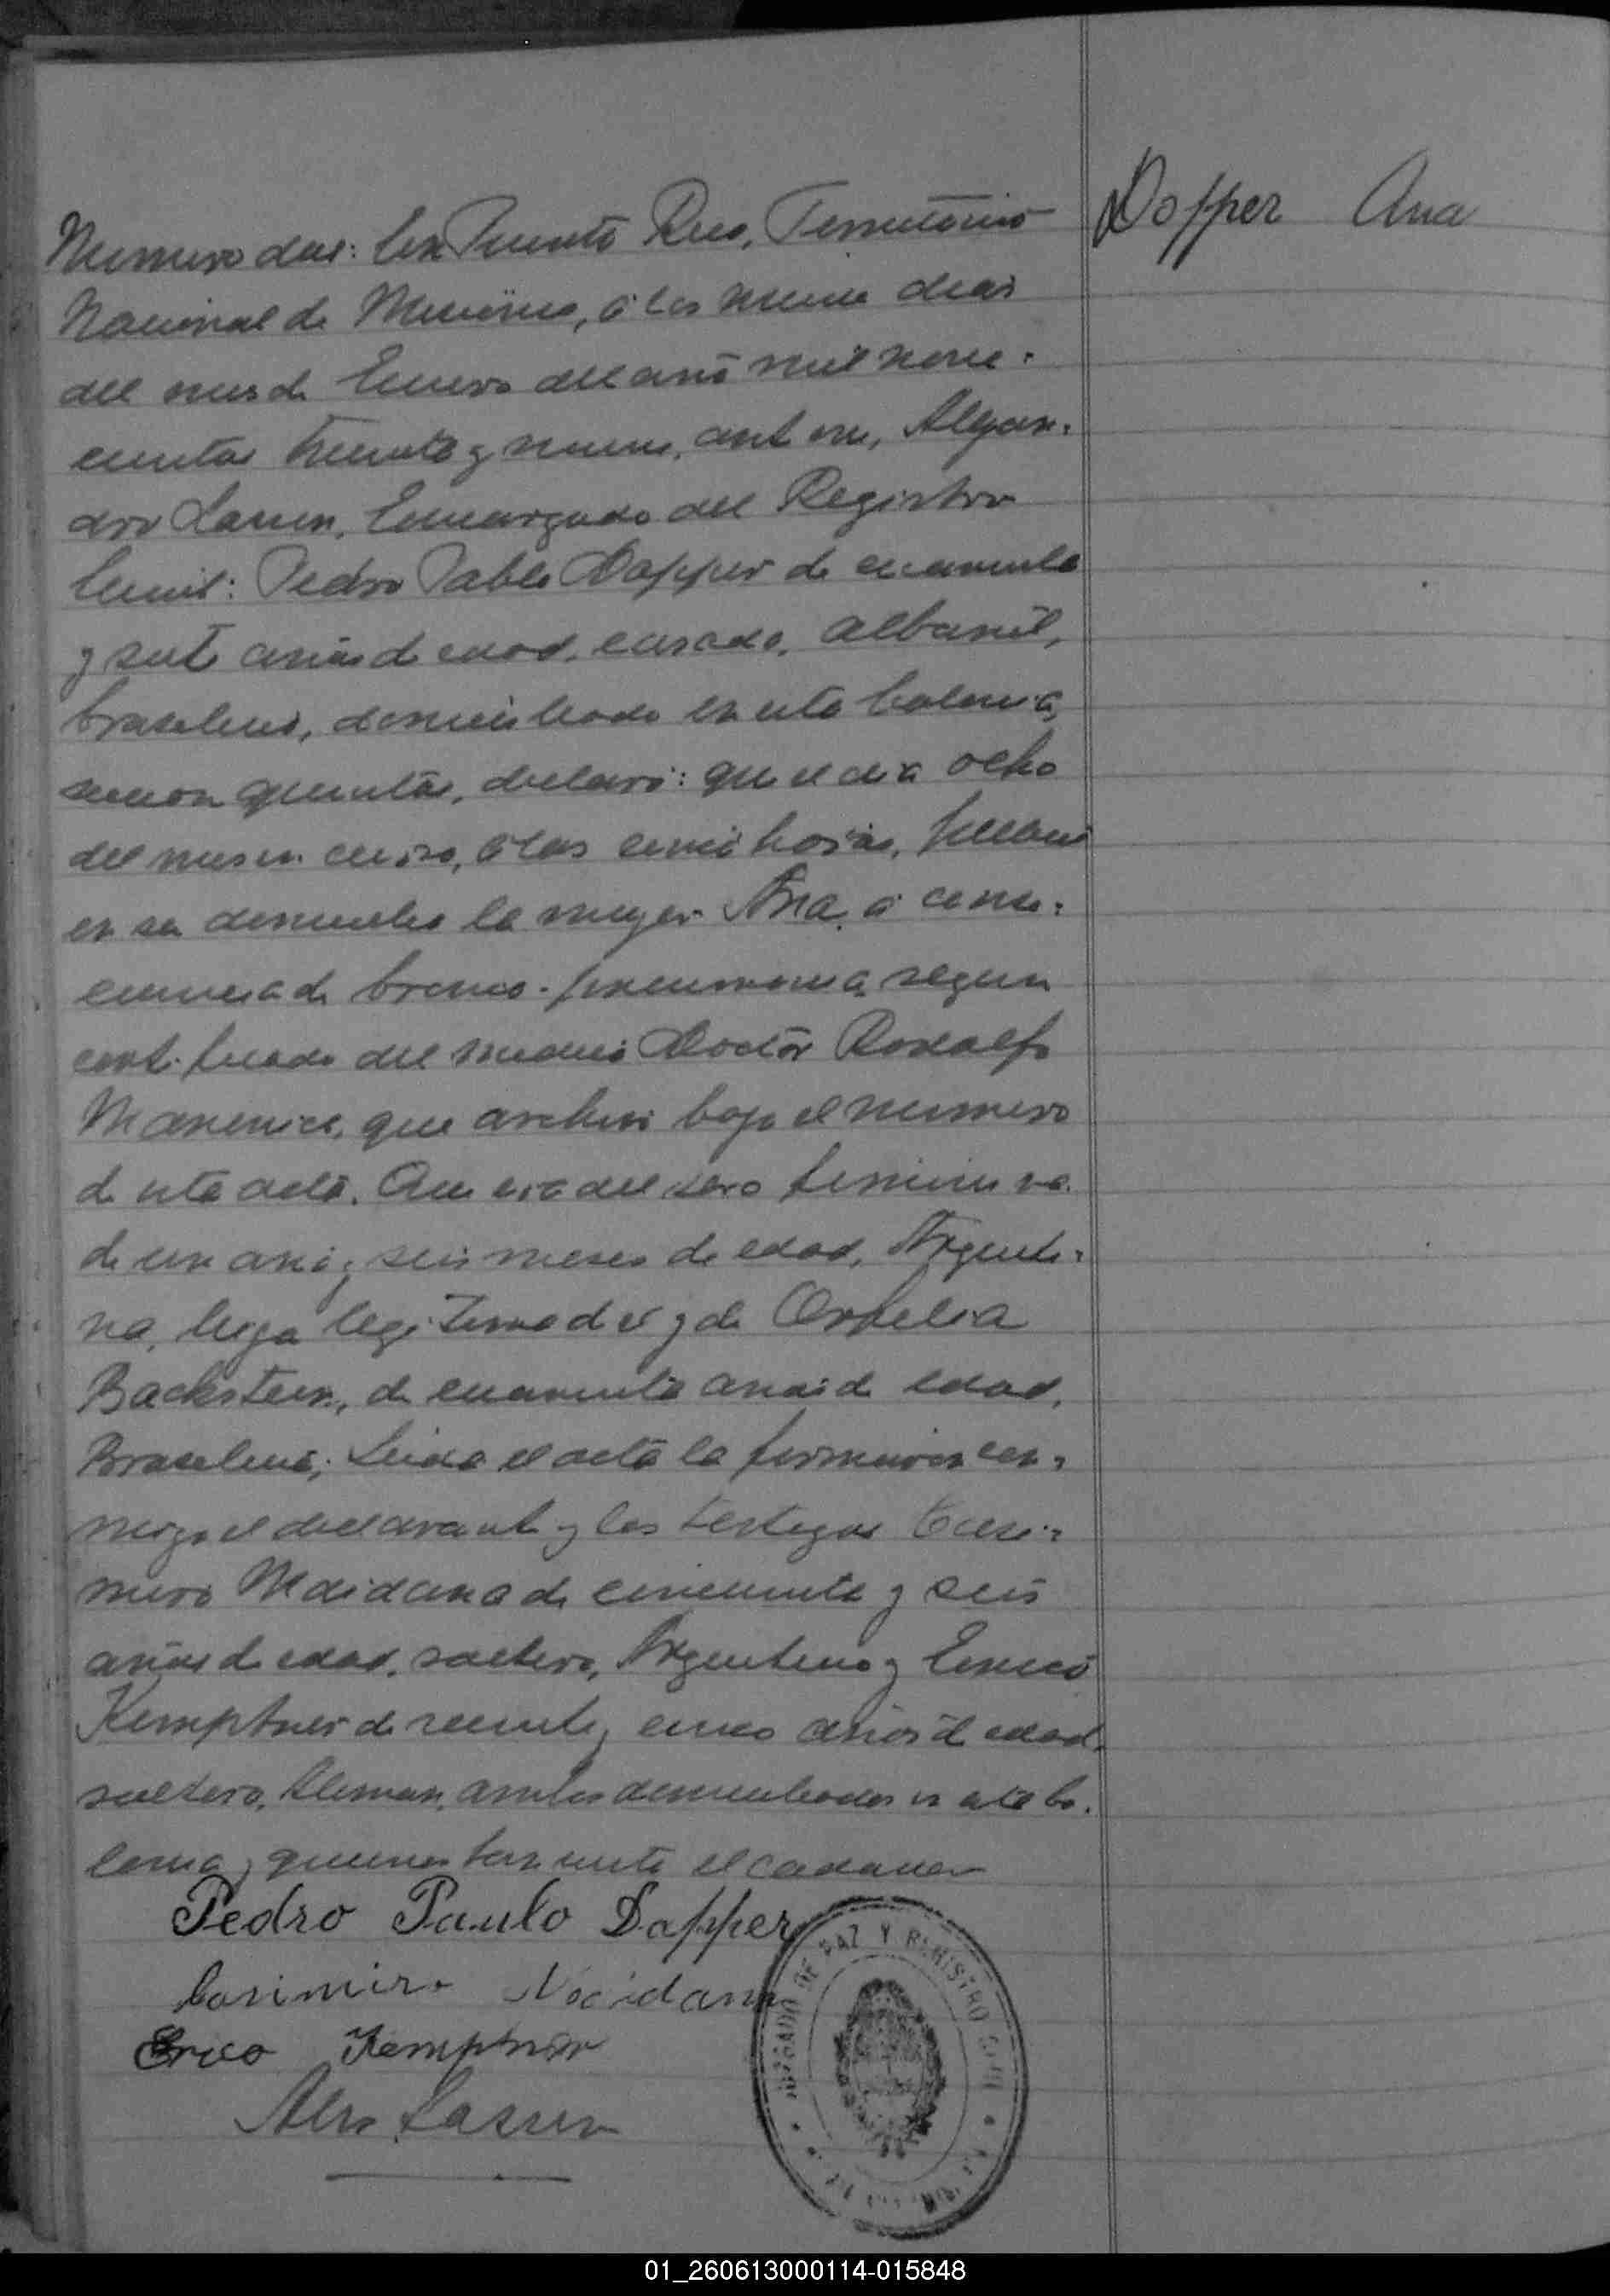 Dapper Ana
Numero dos: En Puerto Rico, Territorio
Nacional de Misiones, á los nueve dias
del mes de Enero del año mil nove-
cientos treinta y nueve, ante mi, Alejan-
dro Larsen, Encargado del Registro
Civil: Pedro Pablo Dapper de cuarenta
y siete años de edad, casado, albañil,
brasilero, domiciliado en esta Colonia,
seccion quintas, declaró: que el dia ocho
del mes en curso, á las cinco horas, fallecio
en su domicilio la mujer Ana, á conse-
cuencia de bronco-pneumonia segun
certificado del medico Doctor Rodolfo
que archivo bajo el numero
de esta acta. Que era del sexo femenino
de un año y seis meses de edad, Argenti-
na, hija legitima de el y de Orfelia
Backstein, de cuarenta años de edad,
Brasilera; Leida el acta la firmaron con-
migo el declarante y los testigos Casi-
miro Maidana de cincuenta y seis
años de edad, soltero, Argentino y Erico
Kemptner de veinte y cinco años de edad
soltero, Aleman, ambos domiciliados en esta Co-
lonia, quienes han visto el cadaver
Pedro Paulo Dapper
Casimiro Maidana
Erico Kemptner
Alej Larsen
JUZGADO DE PAZ Y REGISTRO CIVIL
01_260613000114-015848